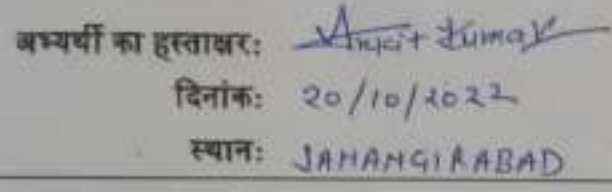 अभ्यर्थी का हस्ताक्षर: Kumar
दिनांक: 20/10/2022
स्थान: JAHANGIRABAD